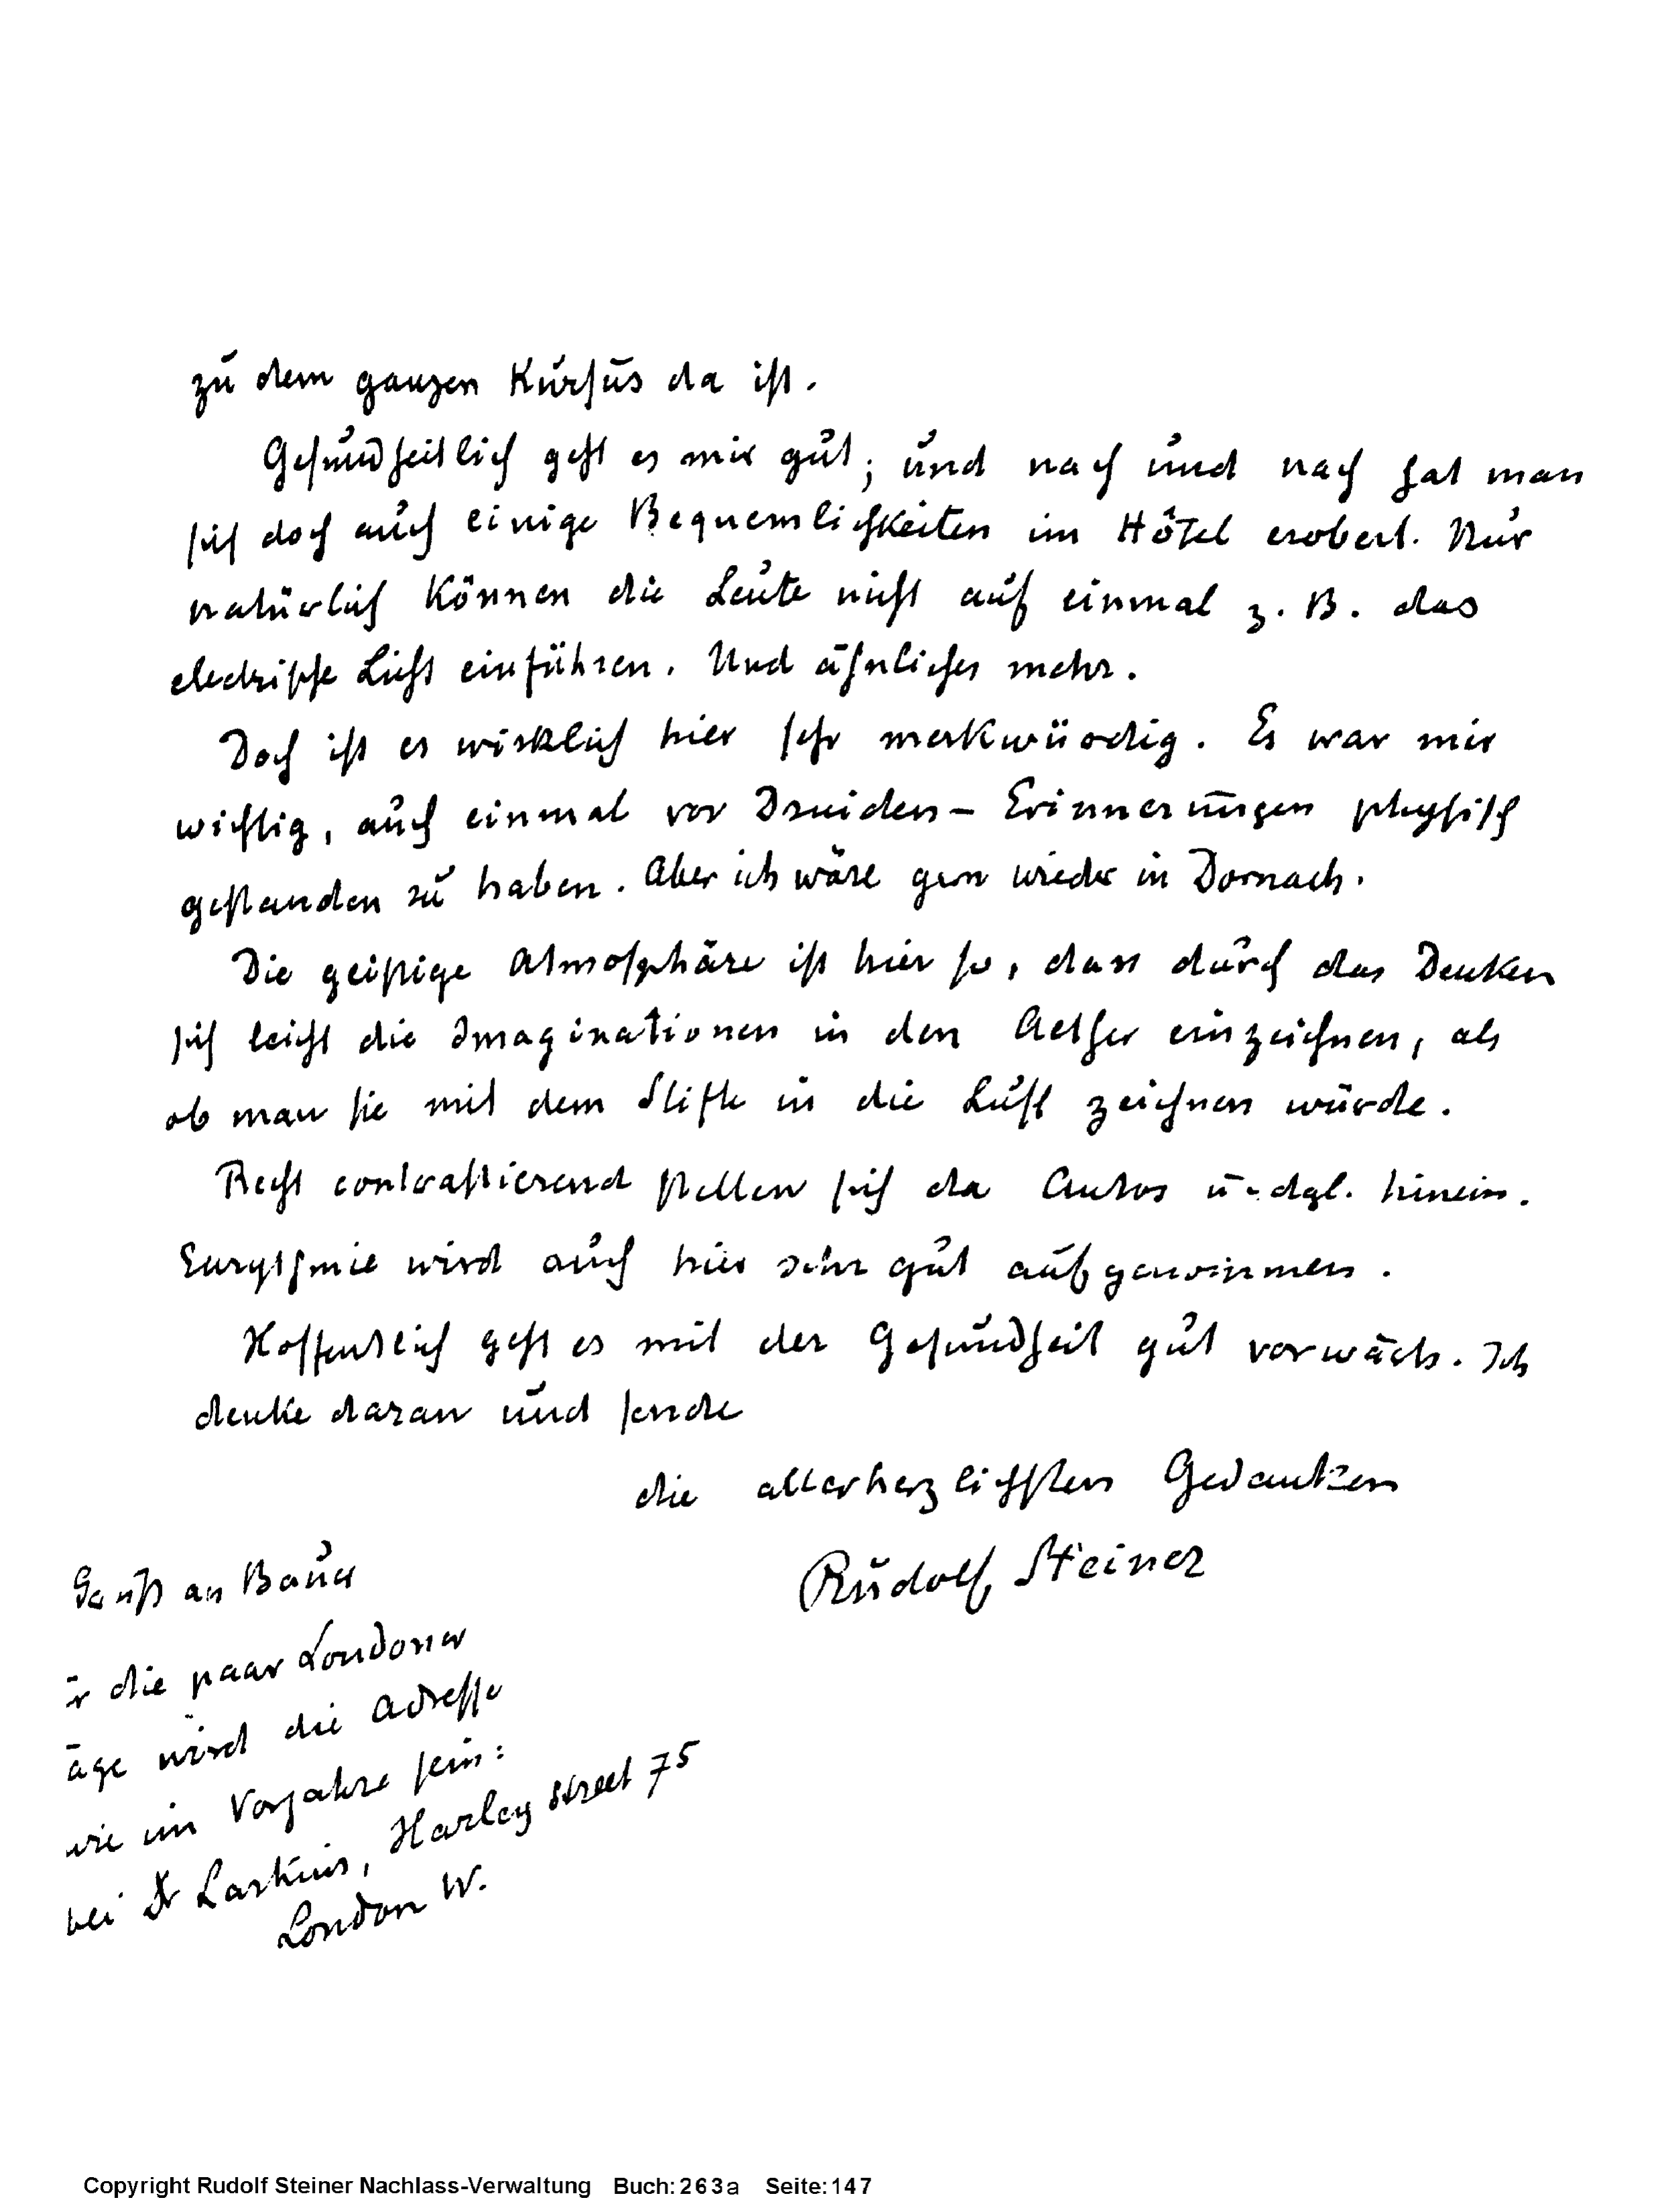 zu dem ganzen Kursus da ist.
Gesundheitlich geht es mir gut; und nach und nach hat man
sich doch auch einige Bequemlichkeiten im Hôtel erobert. Nur
natürlich können die Leute nicht auf einmal z. B. das
electrische Licht einführen. Und ähnliches mehr.
Doch ist es wirklich hier sehr merkwürdig. Es war mir
wichtig, auch einmal vor Druiden-Erinnerungen physisch
gestanden zu haben. Aber ich wäre gern wieder in Dornach.
Die geistige Atmosphäre ist hier so, dass durch das Denken
sich leicht die Imaginationen in den Aether einzeichnen, als
ob man sie mit dem Stifte in die Luft zeichnen würde.
Recht contrastierend stellen sich da Autos u. dgl. hinein.
Eurythmie wird auch hier sehr gut aufgenommen.
Hoffentlich geht es mit der Gesundheit gut vorwärts. Ich
denke daran und sende
die allerherzlichsten Gedanken
Rudolf Steiner
an Bauer
r die paar Londoner
age wird die Adresse
wie im Vorjahre sein:
bei Dr Larkins, Harley Street 75
London W.
Copyright Rudolf Steiner Nachlass-Verwaltung Buch: 263a Seite: 147